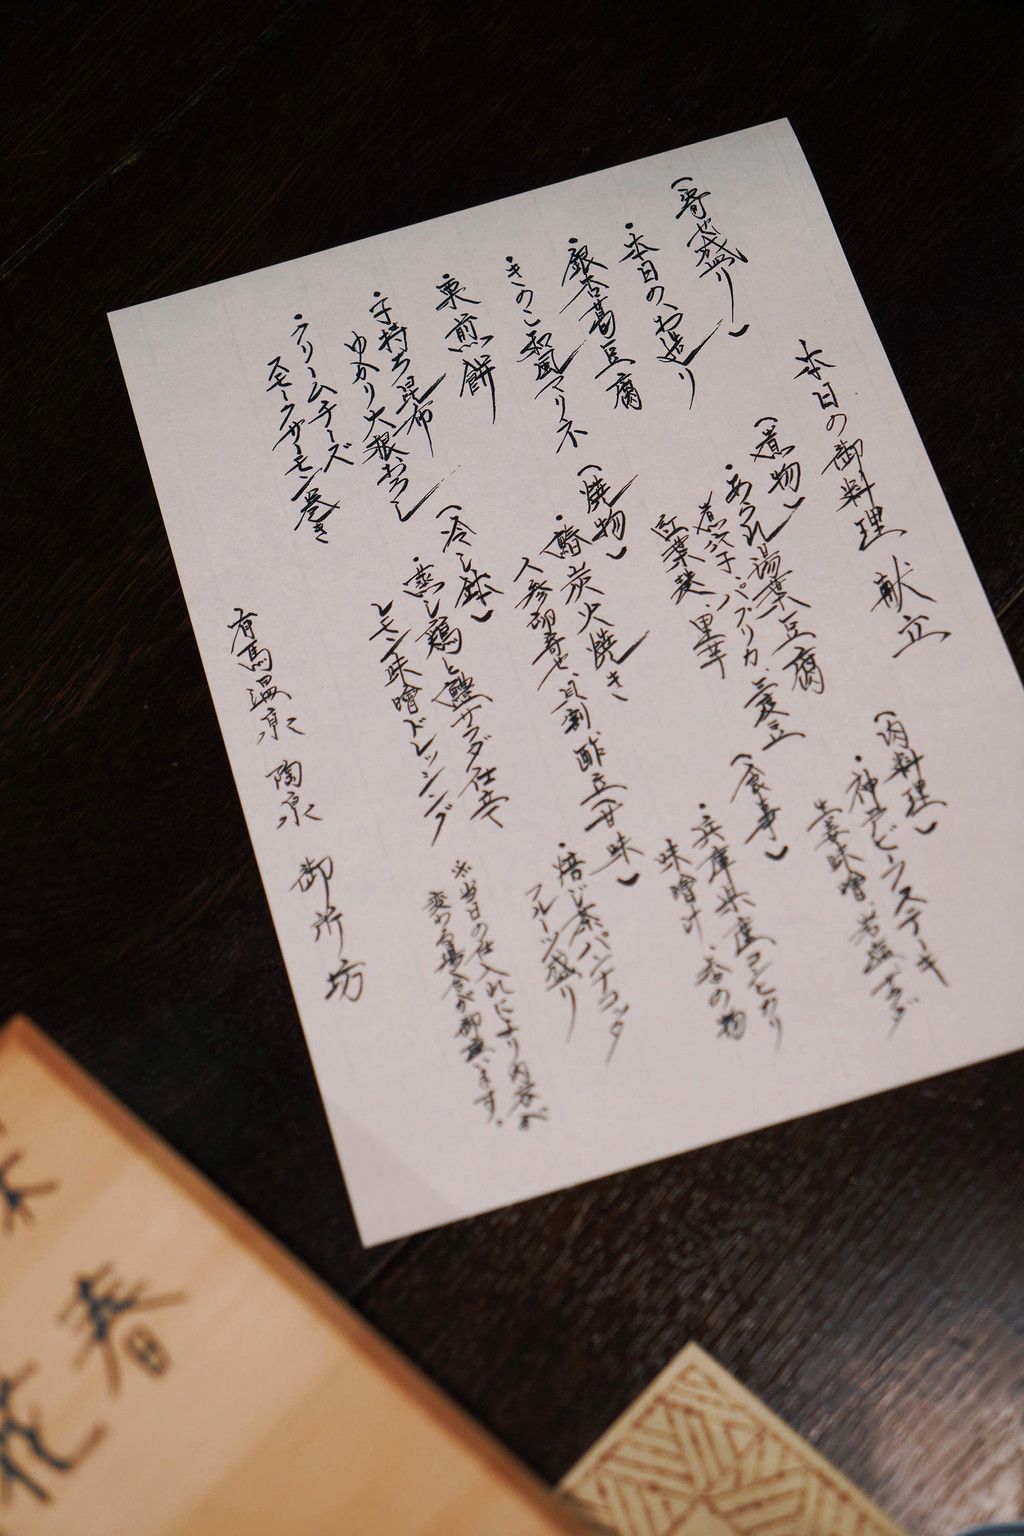 本日の御料理 献立
(寄せ盛り)
・本日のお造り
銀杏葛豆腐
・きのこ和風マリネ
栗煎餅
・子持ち昆布
ゆかり大根おろし
・クリームチーズ
スモークサーモン巻き
(煮物)
・あられ湯葉豆腐
煮穴子、パプリカ、豆
紅葉麸、里芋
(焼物)
・鰆炭火焼き
人参卵寄せ、割酢
(冷し鉢)
・蒸し鶏と サラダ仕立
レモン味噌ドレッシング
(肉料理)
・神戸ビーフステーキ
生姜味噌、岩塩、
(食事)
・兵庫県産コシヒカリ
味噌汁、香の物
(甘味)
・焙じ茶パンナコッタ
フルーツ盛り
※当日の仕入れにより内容が
変わる場合が御座います。
有馬温泉 陶泉 御所坊
春
花